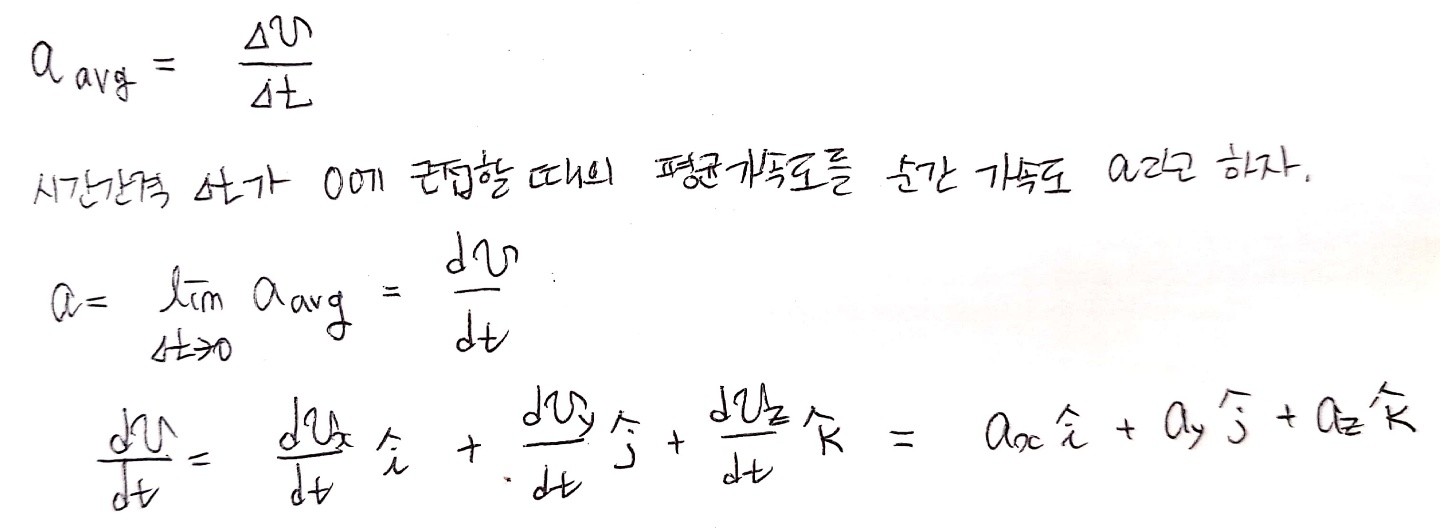 a avg = Δv/Δt
시간간격 Δt가 0에 근접할 때의 평균가속도를 순간 가속도 a라고 하자.
a = lim Δt→0 a avg = dv/dt
dv/dt = dvx/dt î + dvy/dt ĵ + dvz/dt k̂ = ax î + ay ĵ + az k̂